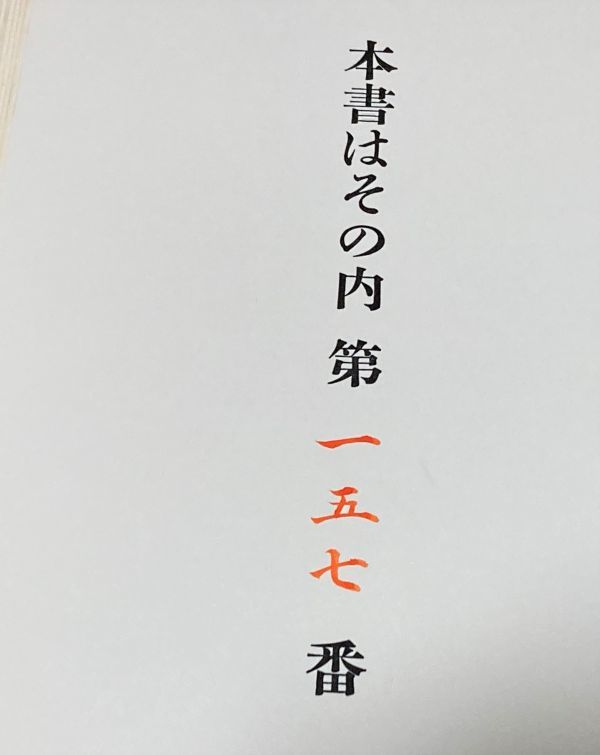 本書はその内 第 一五七 番